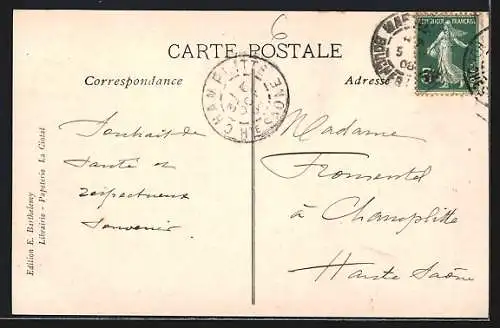 6
CARTE POSTALE
Correspondance
Adresse
RÉPUBLIQUE FRANÇAISE
CHAMPLITTE
Hte SAONE
Souhait de
Santé et
respectueux
Souvenir
Madame
Fromentel
à Champlitte
Haute Saône
Edition E. Barthelemy
Librairie - Papeterie La Ciotat